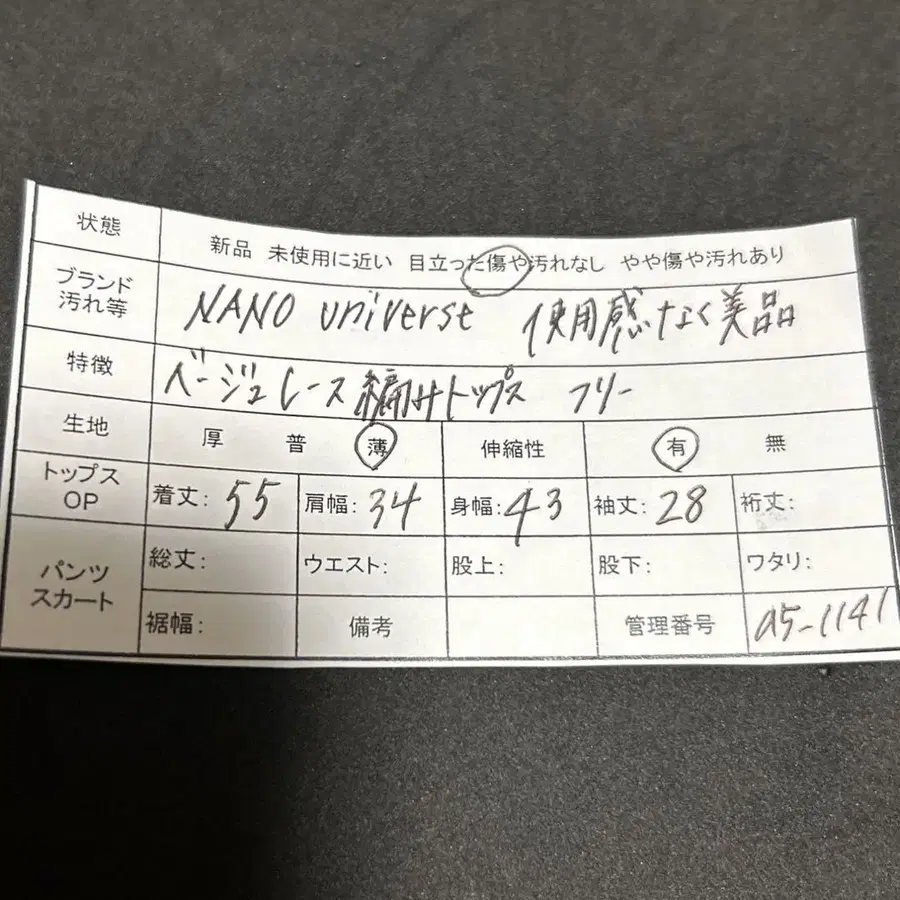 状態 新品 未使用に近い 目立った傷や汚れなし やや傷や汚れあり
ブランド 汚れ等 NANO universe 使用感なく美品
特徴 ベージュレース編みトップス フリー
生地 厚 普 薄 伸縮性 有 無
トップス OP 着丈: 55 肩幅: 34 身幅: 43 袖丈: 28 裄丈:
パンツ スカート 総丈: ウエスト: 股上: 股下: ワタリ:
裾幅: 備考 管理番号 a5-1141